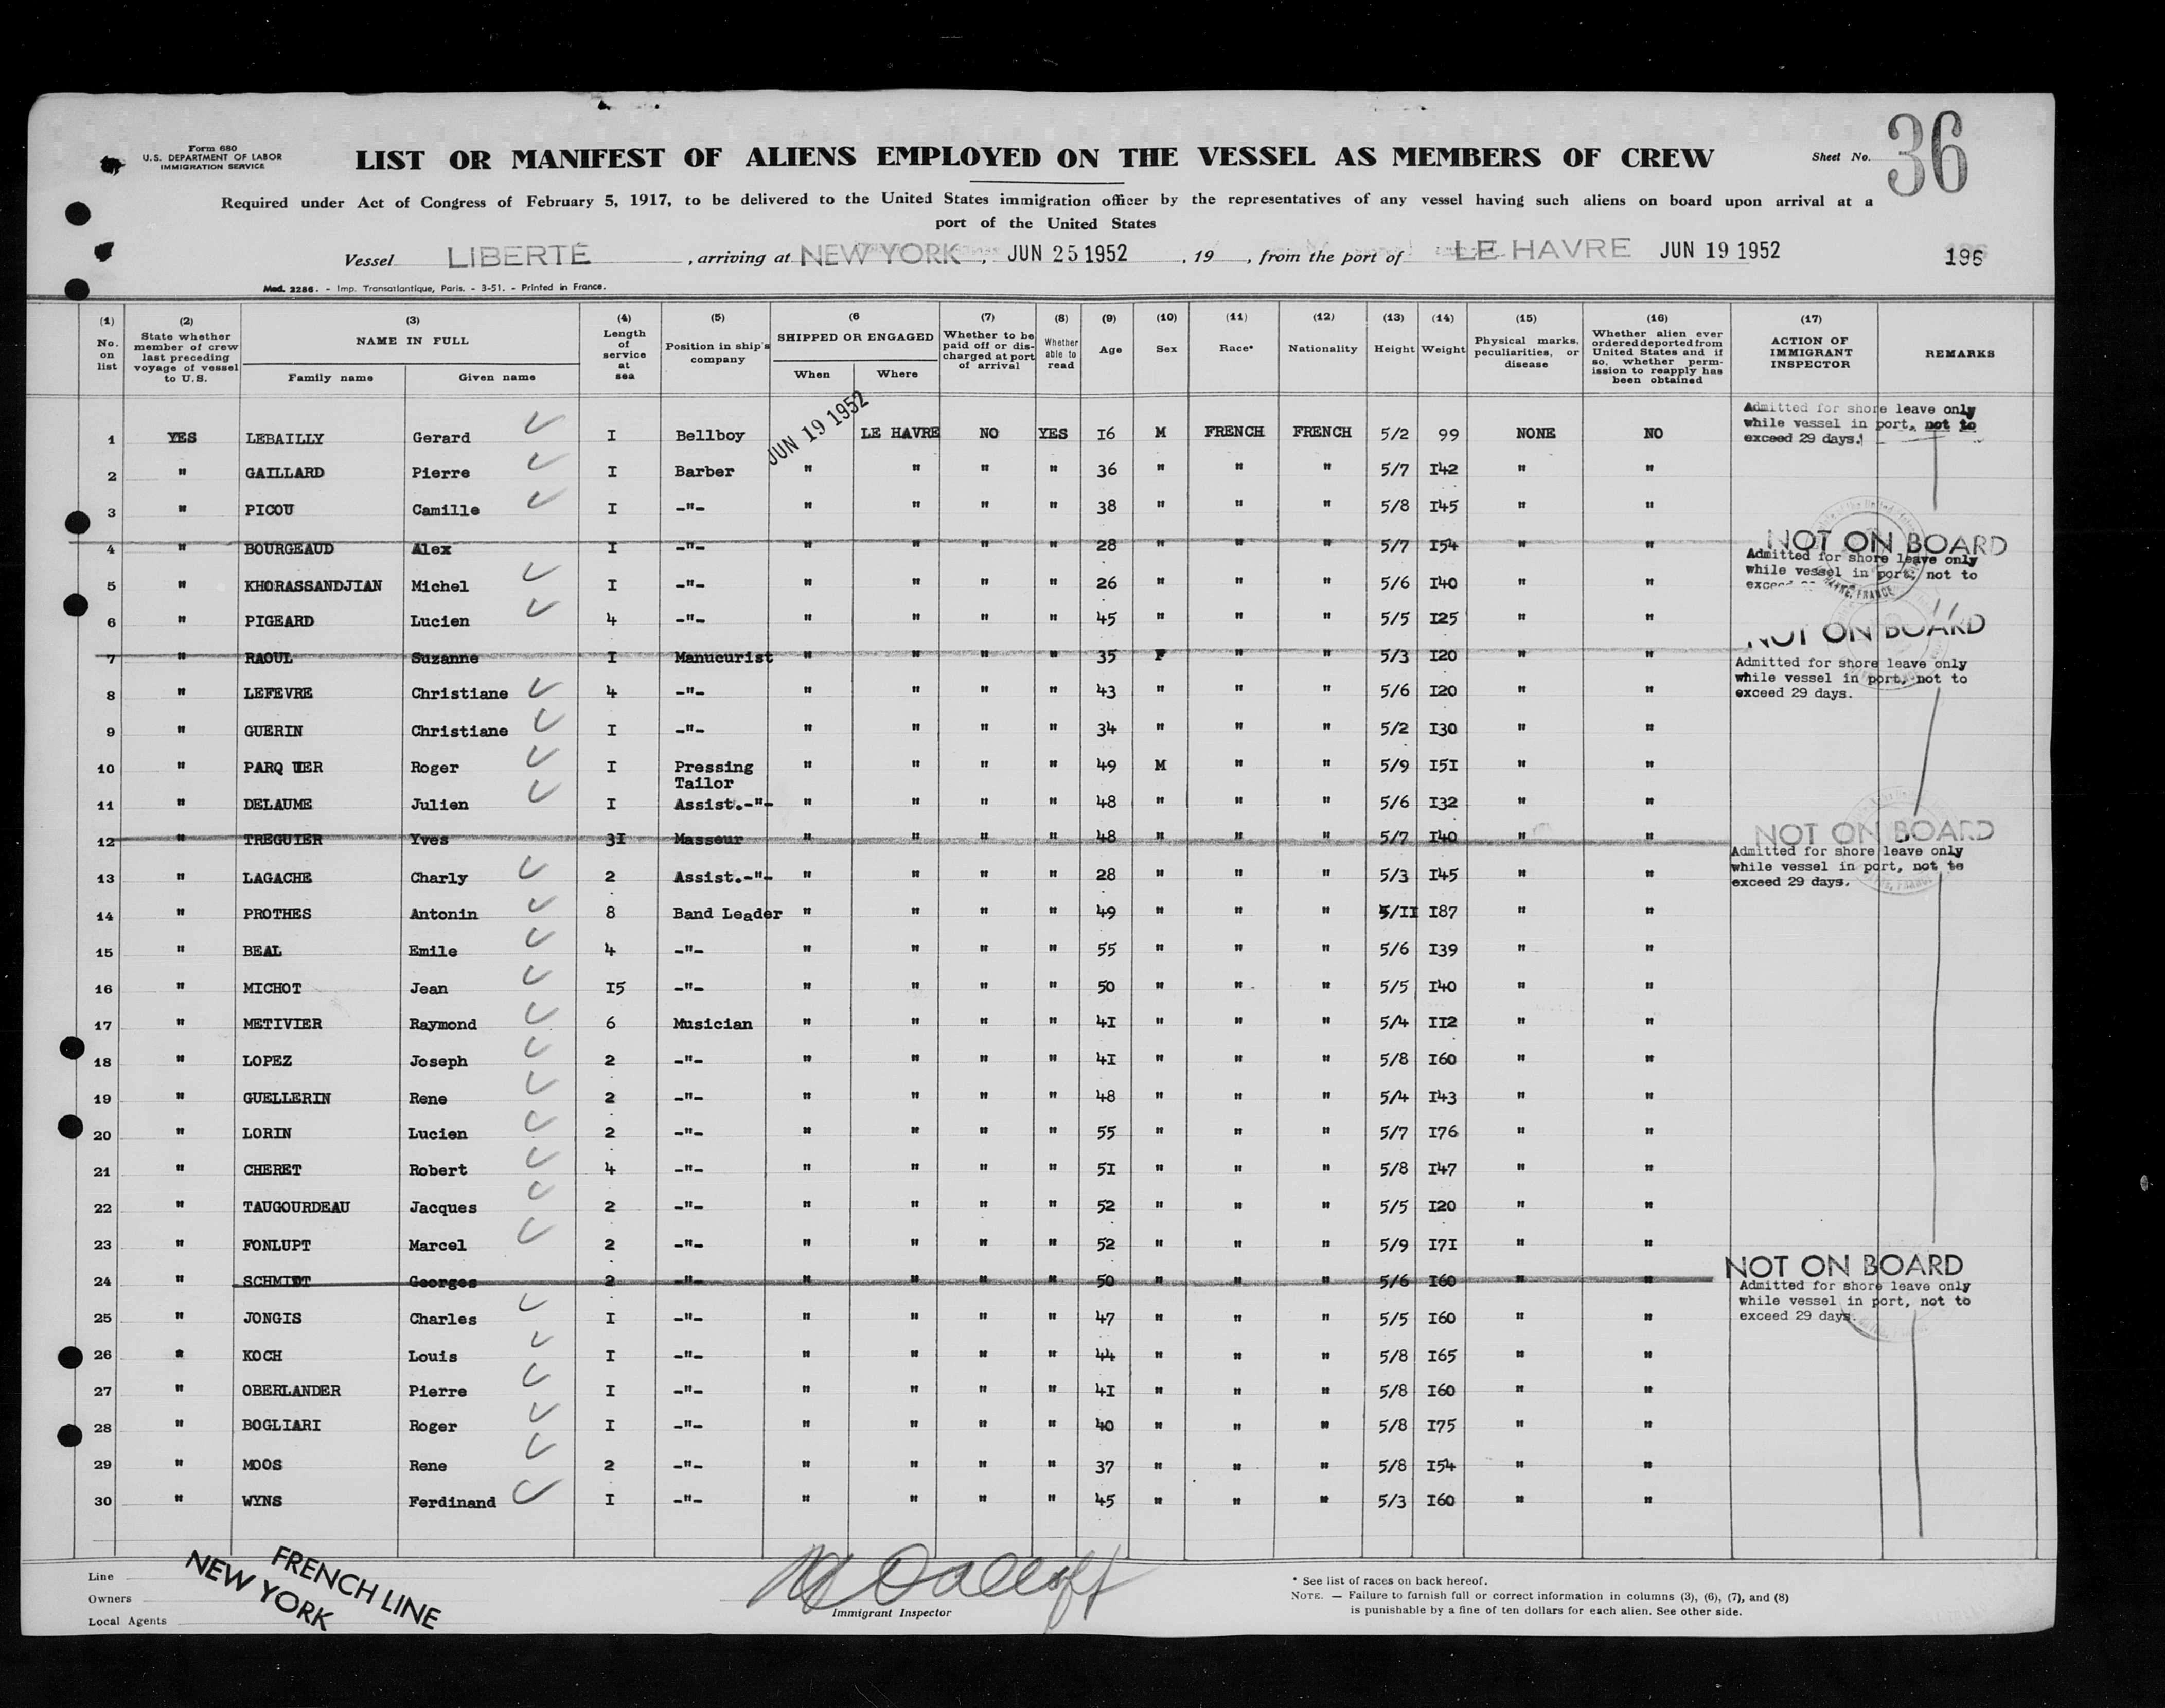 Form 680
U.S. DEPARTMENT OF LABOR
IMMIGRATION SERVICE
LIST OR MANIFEST OF ALIENS EMPLOYED ON THE VESSEL AS MEMBERS OF CREW
Sheet No. 36
Required under Act of Congress of February 5, 1917, to be delivered to the United States immigration officer by the representatives of any vessel having such aliens on board upon arrival at a
port of the United States
Vessel LIBERTE, arriving at NEW YORK, JUN 25 1952, 19 , from the port of LE HAVRE JUN 19 1952 196
Med. 2286. - Imp. Transatlantique, Paris. - 3-51. - Printed in France.
(1) No. on list (2) State whether member of crew last preceding voyage of vessel to U.S. (3) NAME IN FULL Family name Given name (4) Length of service at sea (5) Position in ship's company (6 SHIPPED OR ENGAGED When Where (7) Whether to be paid off or discharged at port of arrival (8) Whether able to read (9) Age (10) Sex (11) Race* (12) Nationality (13) Height (14) Weight (15) Physical marks, peculiarities, or disease (16) Whether alien ever ordered deported from United States and if so, whether permission to reapply has been obtained (17) ACTION OF IMMIGRANT INSPECTOR REMARKS
1 YES LEBAILLY Gerard I Bellboy JUN 19 1952 LE HAVRE NO YES I6 M FRENCH FRENCH 5/2 99 NONE NO
Admitted for shore leave only
while vessel in port, not to
exceed 29 days.
2 " GAILLARD Pierre I Barber " " " " 36 " " " 5/7 I42 " "
3 " PICOU Camille I -"- " " " " 38 " " " 5/8 I45 " "
4 " BOURGEAUD Alex I -"- " " " " 28 " " " 5/7 I54 " " NOT ON BOARD
Admitted for shore leave only
while vessel in port, not to
5 " KHORASSANDJIAN Michel I -"- " " " " 26 " " " 5/6 I40 " "
6 " PIGEARD Lucien 4 -"- " " " " 45 " " " 5/5 I25 " "
7 " RAOUL Suzanne I Manucurist " " " " 35 F " " 5/3 I20 " " NOT ON BOARD
Admitted for shore leave only
while vessel in port, not to
exceed 29 days.
8 " LEFEVRE Christiane 4 -"- " " " " 43 " " " 5/6 I20 " "
9 " GUERIN Christiane I -"- " " " " 34 " " " 5/2 I30 " "
10 " PARQUIER Roger I Pressing Tailor " " " " 49 M " " 5/9 I5I " "
11 " DELAUME Julien I Assist.-"- " " " " 48 " " " 5/6 I32 " "
12 " TREGUIER Yves 3I Masseur " " " " 48 " " " 5/7 I40 " " NOT ON BOARD
Admitted for shore leave only
while vessel in port, not to
exceed 29 days.
13 " LAGACHE Charly 2 Assist.-"- " " " " 28 " " " 5/3 I45 " "
14 " PROTHES Antonin 8 Band Leader " " " " 49 " " " 5/II I87 " "
15 " BEAL Emile 4 -"- " " " " 55 " " " 5/6 I39 " "
16 " MICHOT Jean I5 -"- " " " " 50 " " " 5/5 I40 " "
17 " METIVIER Raymond 6 Musician " " " " 4I " " " 5/4 II2 " "
18 " LOPEZ Joseph 2 -"- " " " " 4I " " " 5/8 I60 " "
19 " GUELLERIN Rene 2 -"- " " " " 48 " " " 5/4 I43 " "
20 " LORIN Lucien 2 -"- " " " " 55 " " " 5/7 I76 " "
21 " CHERET Robert 4 -"- " " " " 5I " " " 5/8 I47 " "
22 " TAUGOURDEAU Jacques 2 -"- " " " " 52 " " " 5/5 I20 " "
23 " FONLUPT Marcel 2 -"- " " " " 52 " " " 5/9 I7I " "
24 " SCHMIDT Georges 2 -"- " " " " 50 " " " 5/6 I60 " " NOT ON BOARD
Admitted for shore leave only
while vessel in port, not to
exceed 29 days.
25 " JONGIS Charles I -"- " " " " 47 " " " 5/5 I60 " "
26 " KOCH Louis I -"- " " " " 44 " " " 5/8 I65 " "
27 " OBERLANDER Pierre I -"- " " " " 4I " " " 5/8 I60 " "
28 " BOGLIARI Roger I -"- " " " " 40 " " " 5/8 I75 " "
29 " MOOS Rene 2 -"- " " " " 37 " " " 5/8 I54 " "
30 " WYNS Ferdinand I -"- " " " " 45 " " " 5/3 I60 " "
Line
Owners
Local Agents
FRENCH LINE
NEW YORK
Immigrant Inspector
* See list of races on back hereof.
NOTE. — Failure to furnish full or correct information in columns (3), (6), (7), and (8)
is punishable by a fine of ten dollars for each alien. See other side.